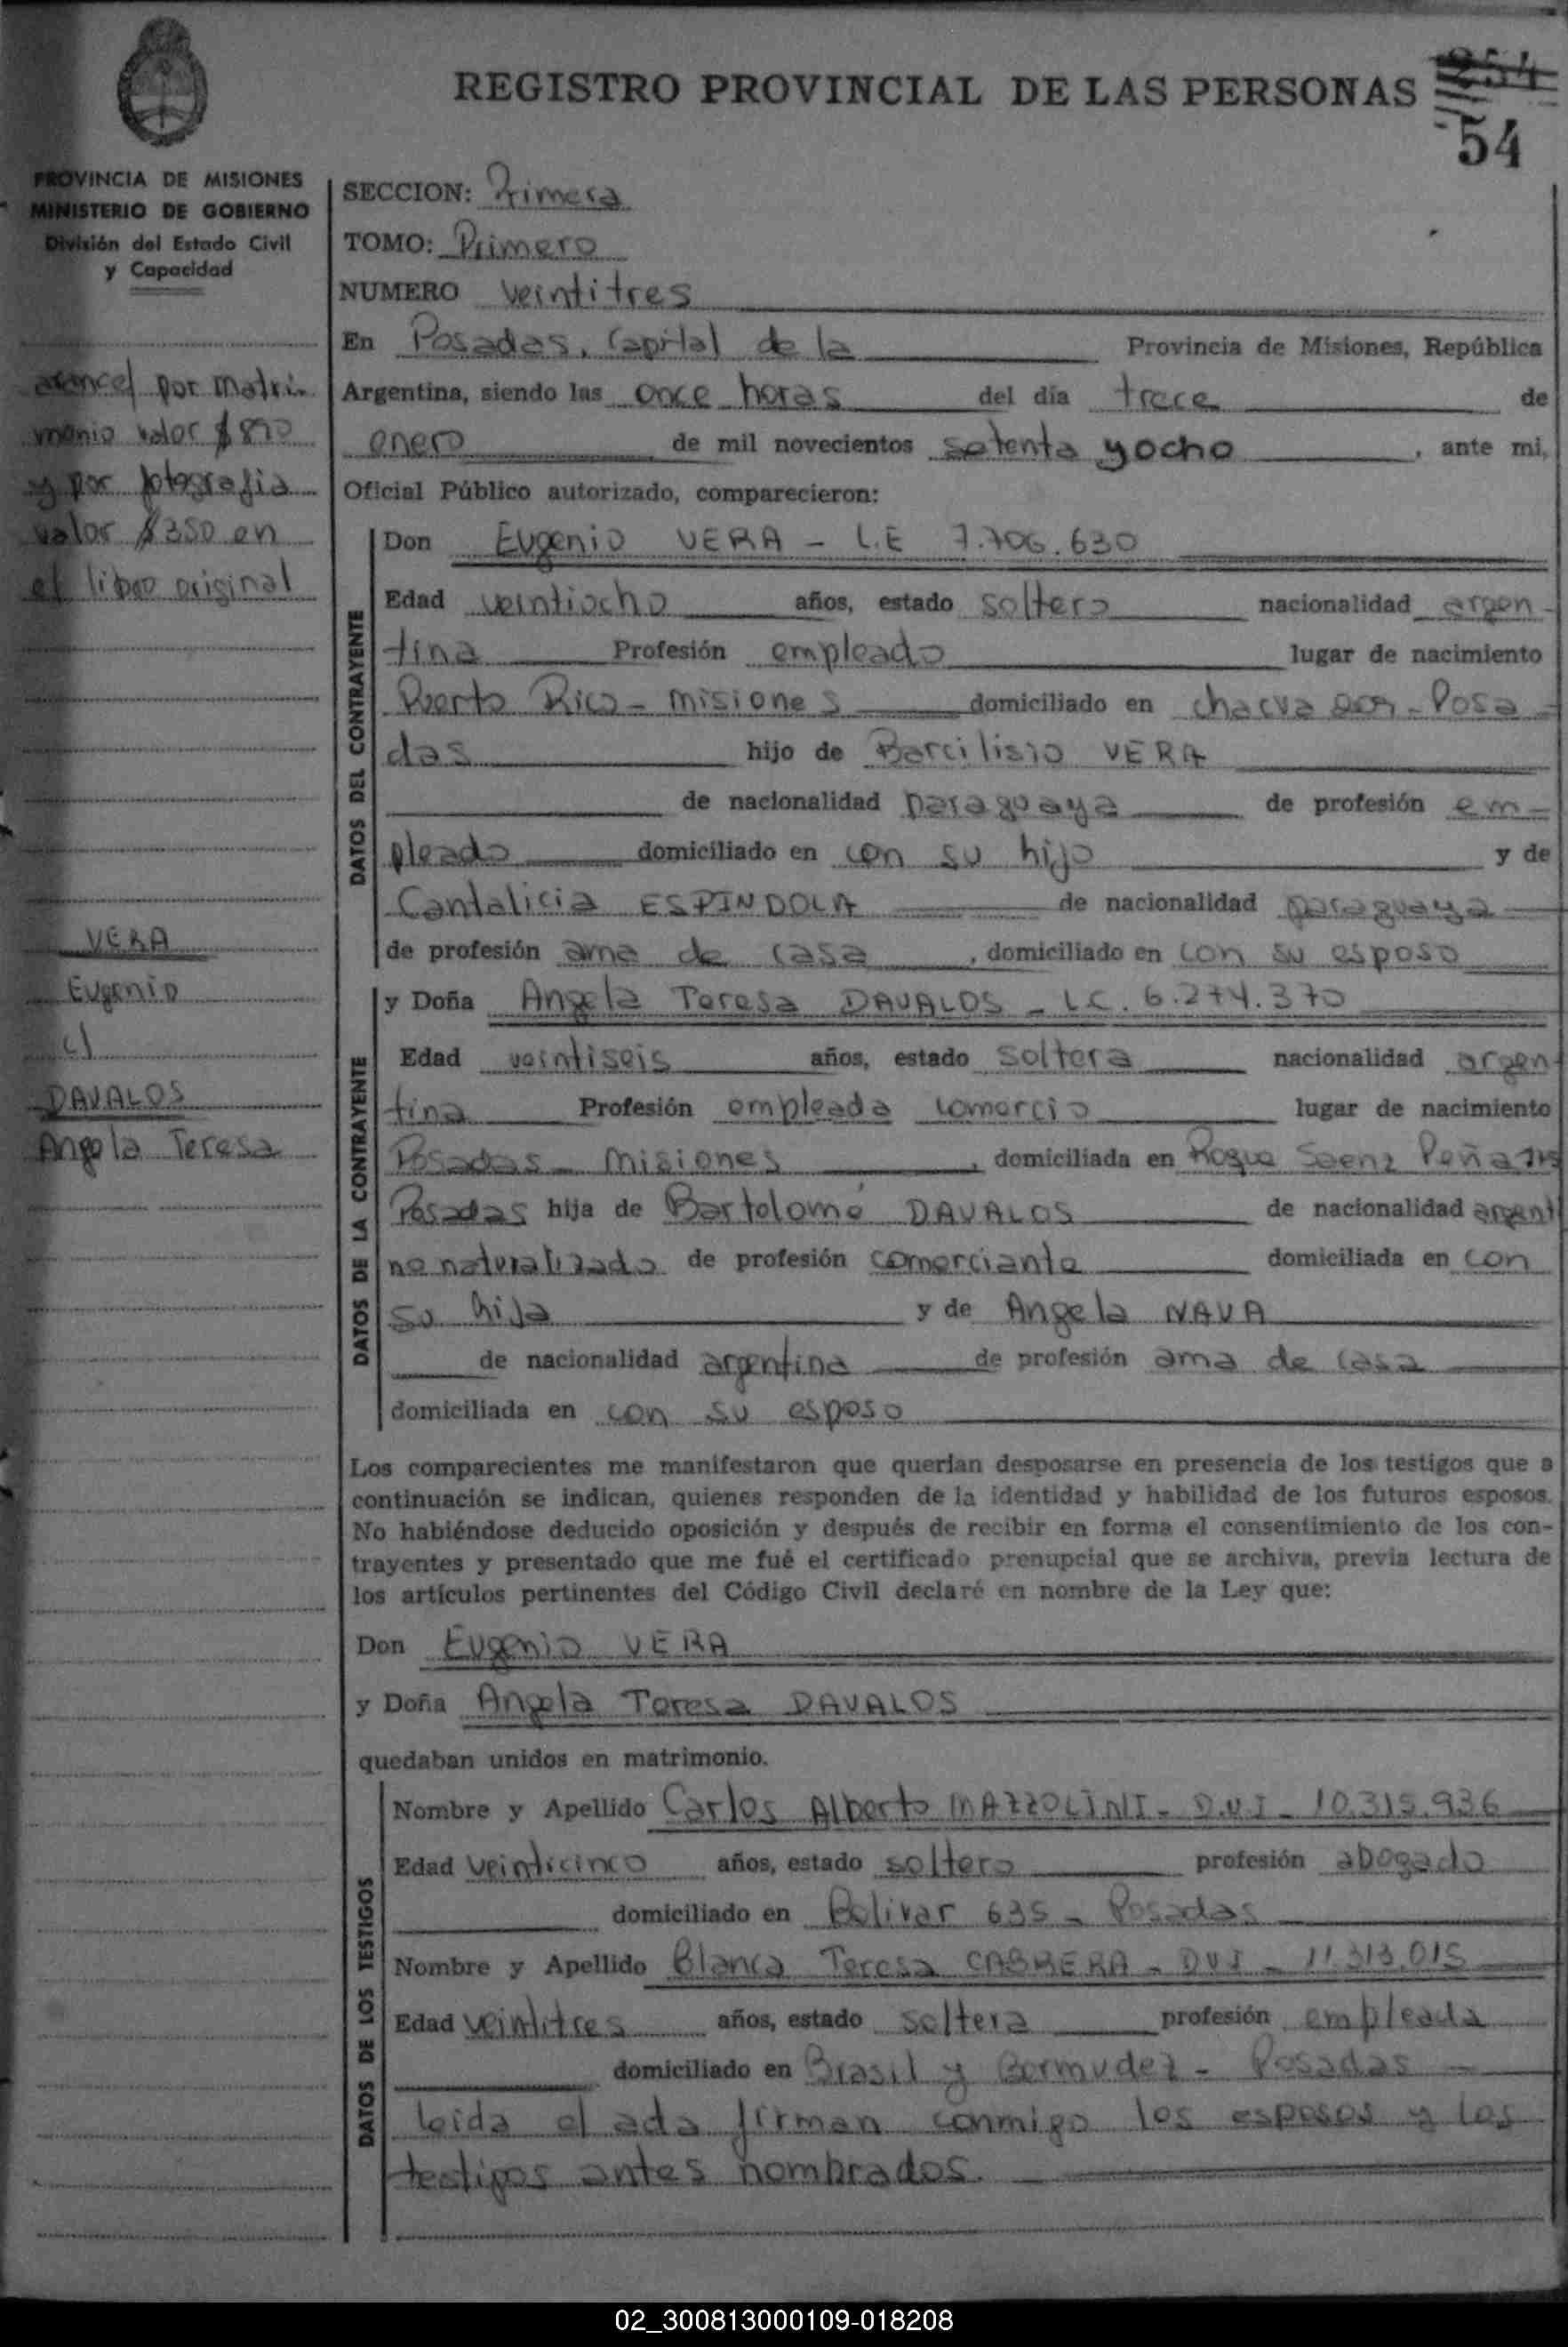 REGISTRO PROVINCIAL DE LAS PERSONAS
254
54
PROVINCIA DE MISIONES
MINISTERIO DE GOBIERNO
División del Estado Civil
y Capacidad
arancel por matri
monio valor $
y por fotografia
valor $350 en
el libro original
VERA
Eugenio
c/
DAVALOS
Angela Teresa
SECCION: Primera
TOMO: Primero
NUMERO veintitres
En Posadas, Capital de la Provincia de Misiones, República
Argentina, siendo las once horas del día trece de
enero de mil novecientos setenta y ocho, ante mi,
Oficial Público autorizado, comparecieron:
DATOS DEL CONTRAYENTE
Don Eugenio VERA - L.E 7.706.630
Edad veintiocho años, estado soltero nacionalidad argen-
tina Profesión empleado lugar de nacimiento
Puerto Rico - misiones domiciliado en chacra - Posa-
das hijo de Barcilisio VERA
de nacionalidad paraguaya de profesión em-
pleado domiciliado en con su hijo y de
Cantalicia ESPINDOLA de nacionalidad paraguaya
de profesión ama de casa, domiciliado en con su esposo
DATOS DE LA CONTRAYENTE
y Doña Angela Teresa DAVALOS - L.C. 6.274.370
Edad veintiseis años, estado soltera nacionalidad argen-
tina Profesión empleada comercio lugar de nacimiento
Posadas - Misiones, domiciliada en Roque Saenz Peña
Posadas hija de Bartolomé DAVALOS de nacionalidad argenti
no naturalizado de profesión comerciante domiciliada en con
su hija y de Angela NAVA
de nacionalidad argentina de profesión ama de casa
domiciliada en con su esposo
Los comparecientes me manifestaron que querían desposarse en presencia de los testigos que a
continuación se indican, quienes responden de la identidad y habilidad de los futuros esposos.
No habiéndose deducido oposición y después de recibir en forma el consentimiento de los con-
trayentes y presentado que me fué el certificado prenupcial que se archiva, previa lectura de
los artículos pertinentes del Código Civil declaré en nombre de la Ley que:
Don Eugenio VERA
y Doña Angela Teresa DAVALOS
quedaban unidos en matrimonio.
DATOS DE LOS TESTIGOS
Nombre y Apellido Carlos Alberto MAZZOLINI - D.N.I - 10.315.936
Edad veinticinco años, estado soltero profesión abogado
domiciliado en Bolivar 635 - Posadas
Nombre y Apellido Blanca Teresa CABRERA - DNI - 11.313.015
Edad veintitres años, estado soltera profesión empleada
domiciliado en Brasil y Bermudez - Posadas
leida el acta firman conmigo los esposos y los
testigos antes nombrados.
02_300813000109-018208